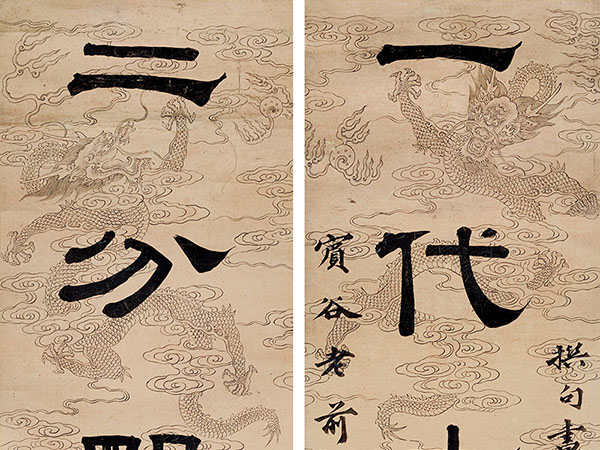 撰句書
一代
賓谷老前
二分